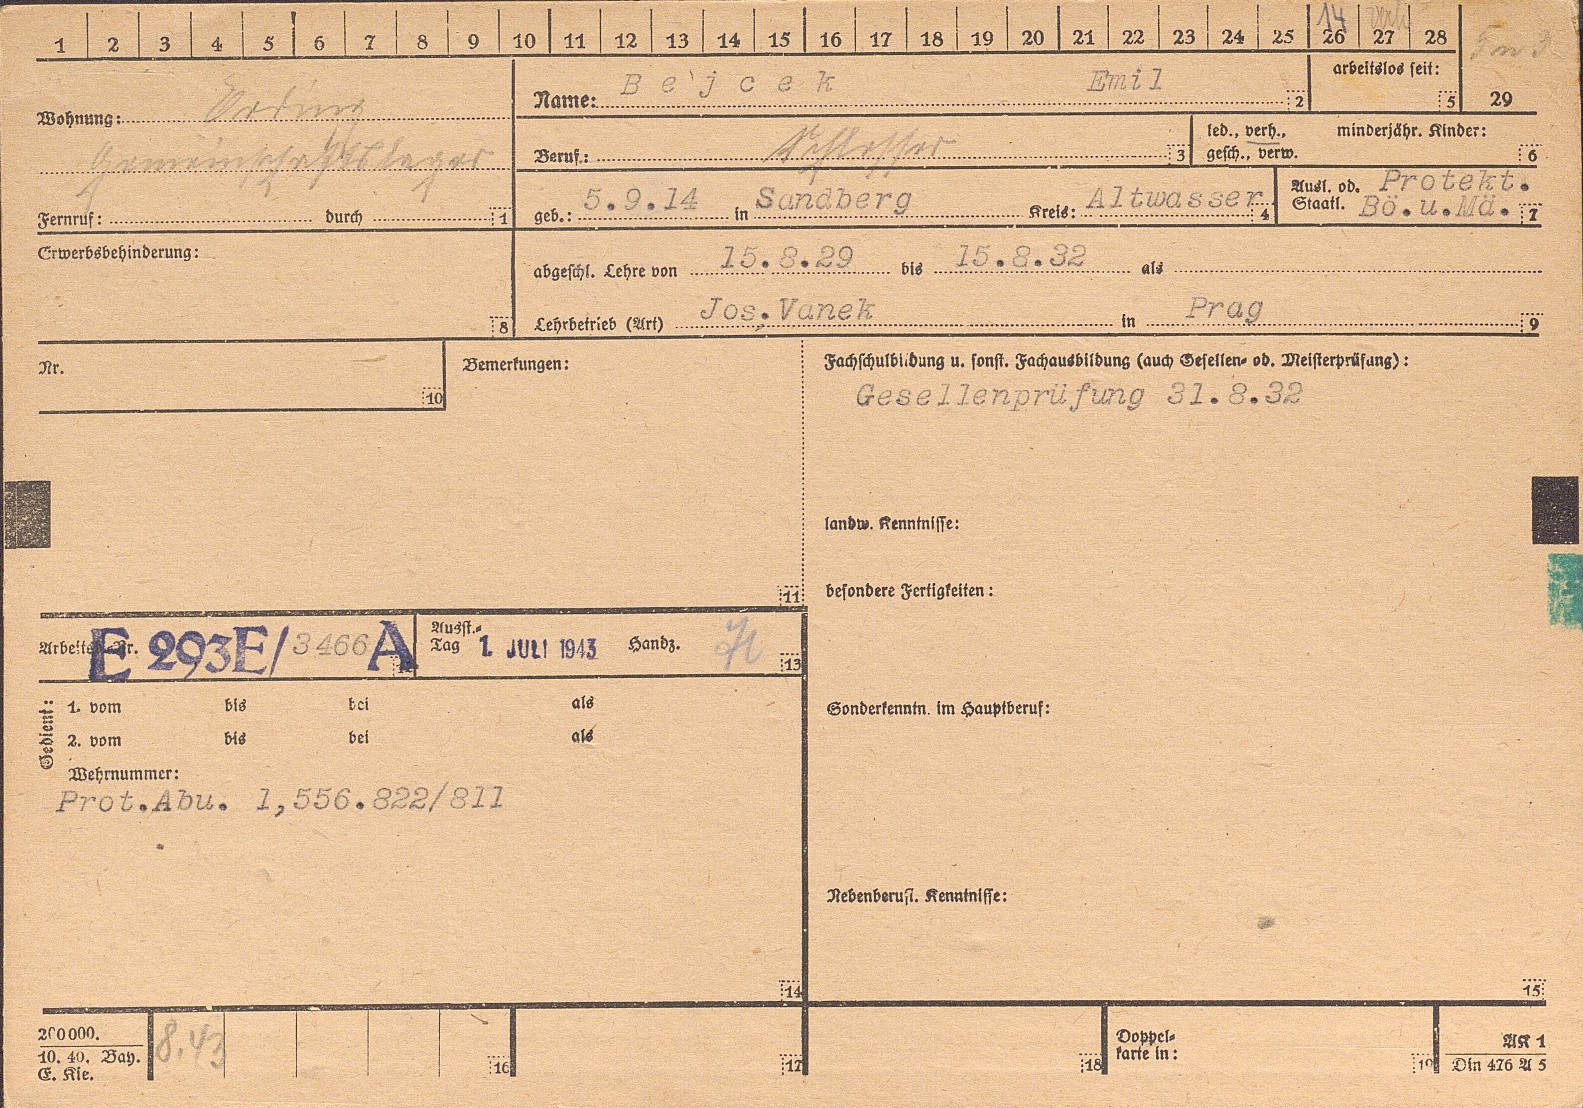 1 2 3 4 5 6 7 8 9 10 11 12 13 14 15 16 17 18 19 20 21 22 23 24 25 26 27 28
14
Wohnung: Erding
Gemeinschaftslager
Fernruf: durch 1
Name: Bejcek Emil 2
arbeitslos seit: 5
29
Beruf: Schlosser 3
led., verh., minderjähr. Kinder:
gesch., verw. 6
geb.: 5.9.14 in Sandberg Kreis: Altwasser 4
Ausl. od. Protekt.
Staatl. Bö.u.Mä. 7
Erwerbsbehinderung:
8
abgeschl. Lehre von 15.8.29 bis 15.8.32 als
Lehrbetrieb (Art) Jos.Vanek in Prag 9
Nr.
10
Bemerkungen:
11
Fachschulbildung u. sonst. Fachausbildung (auch Gesellen- od. Meisterprüfung):
Gesellenprüfung 31.8.32
landw. Kenntnisse:
besondere Fertigkeiten:
Sonderkenntn. im Hauptberuf:
Nebenberufl. Kenntnisse:
15
Arbeitsb.-Nr. E 293E/3466 A
Ausst.-
Tag 1. JULI 1943 Handz. 13
Gedient:
1. vom bis bei als
2. vom bis bei als
Wehrnummer:
Prot.Abu. 1,556.822/811
14
200000.
10. 40. Bay.
E. Kle.
8.43
16
17
18
Doppel-
karte in:
19
AK 1
Din 476 A 5